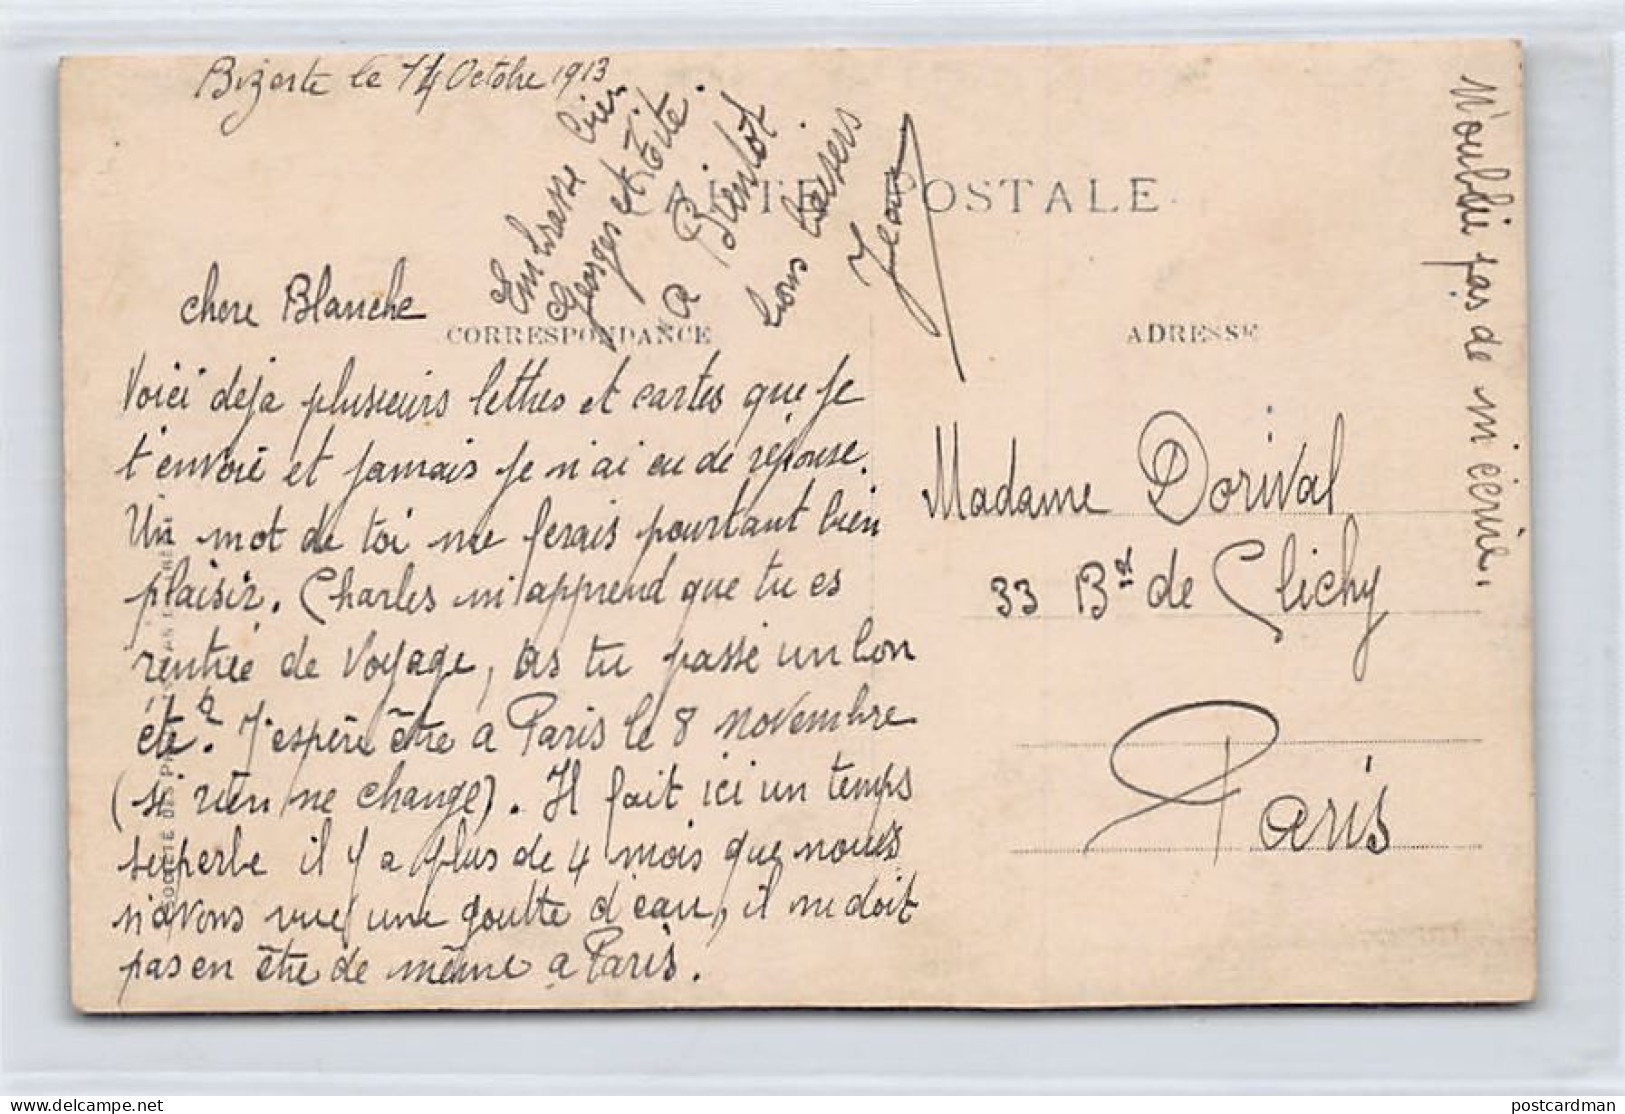 Bizerte le 14 Octobre 1913
CARTE POSTALE
chere Blanche
CORRESPONDANCE
ADRESSE
Voici deja plusieurs lettres et cartes que je
t'envoie et jamais je n'ai eu de réponse.
Un mot de toi me ferais pourtant bien
plaisir. Charles m'apprend que tu es
rentrée de voyage, as tu passé un bon
été? J'espère être a Paris le 8 novembre
(si rien ne change). Il fait ici un temps
superbe il y a plus de 4 mois que nous
n'avons vue une goutte d'eau, il ne doit
pas en être de même a Paris.
Embrasse bien
Georges et Tété.
A Bientot
bons baisers
Jean
N'oublie pas de m'écrire.
Madame Dorival
33 Bd de Clichy
Paris
SOCIÉTÉ DES
postcardman
delcampe.net